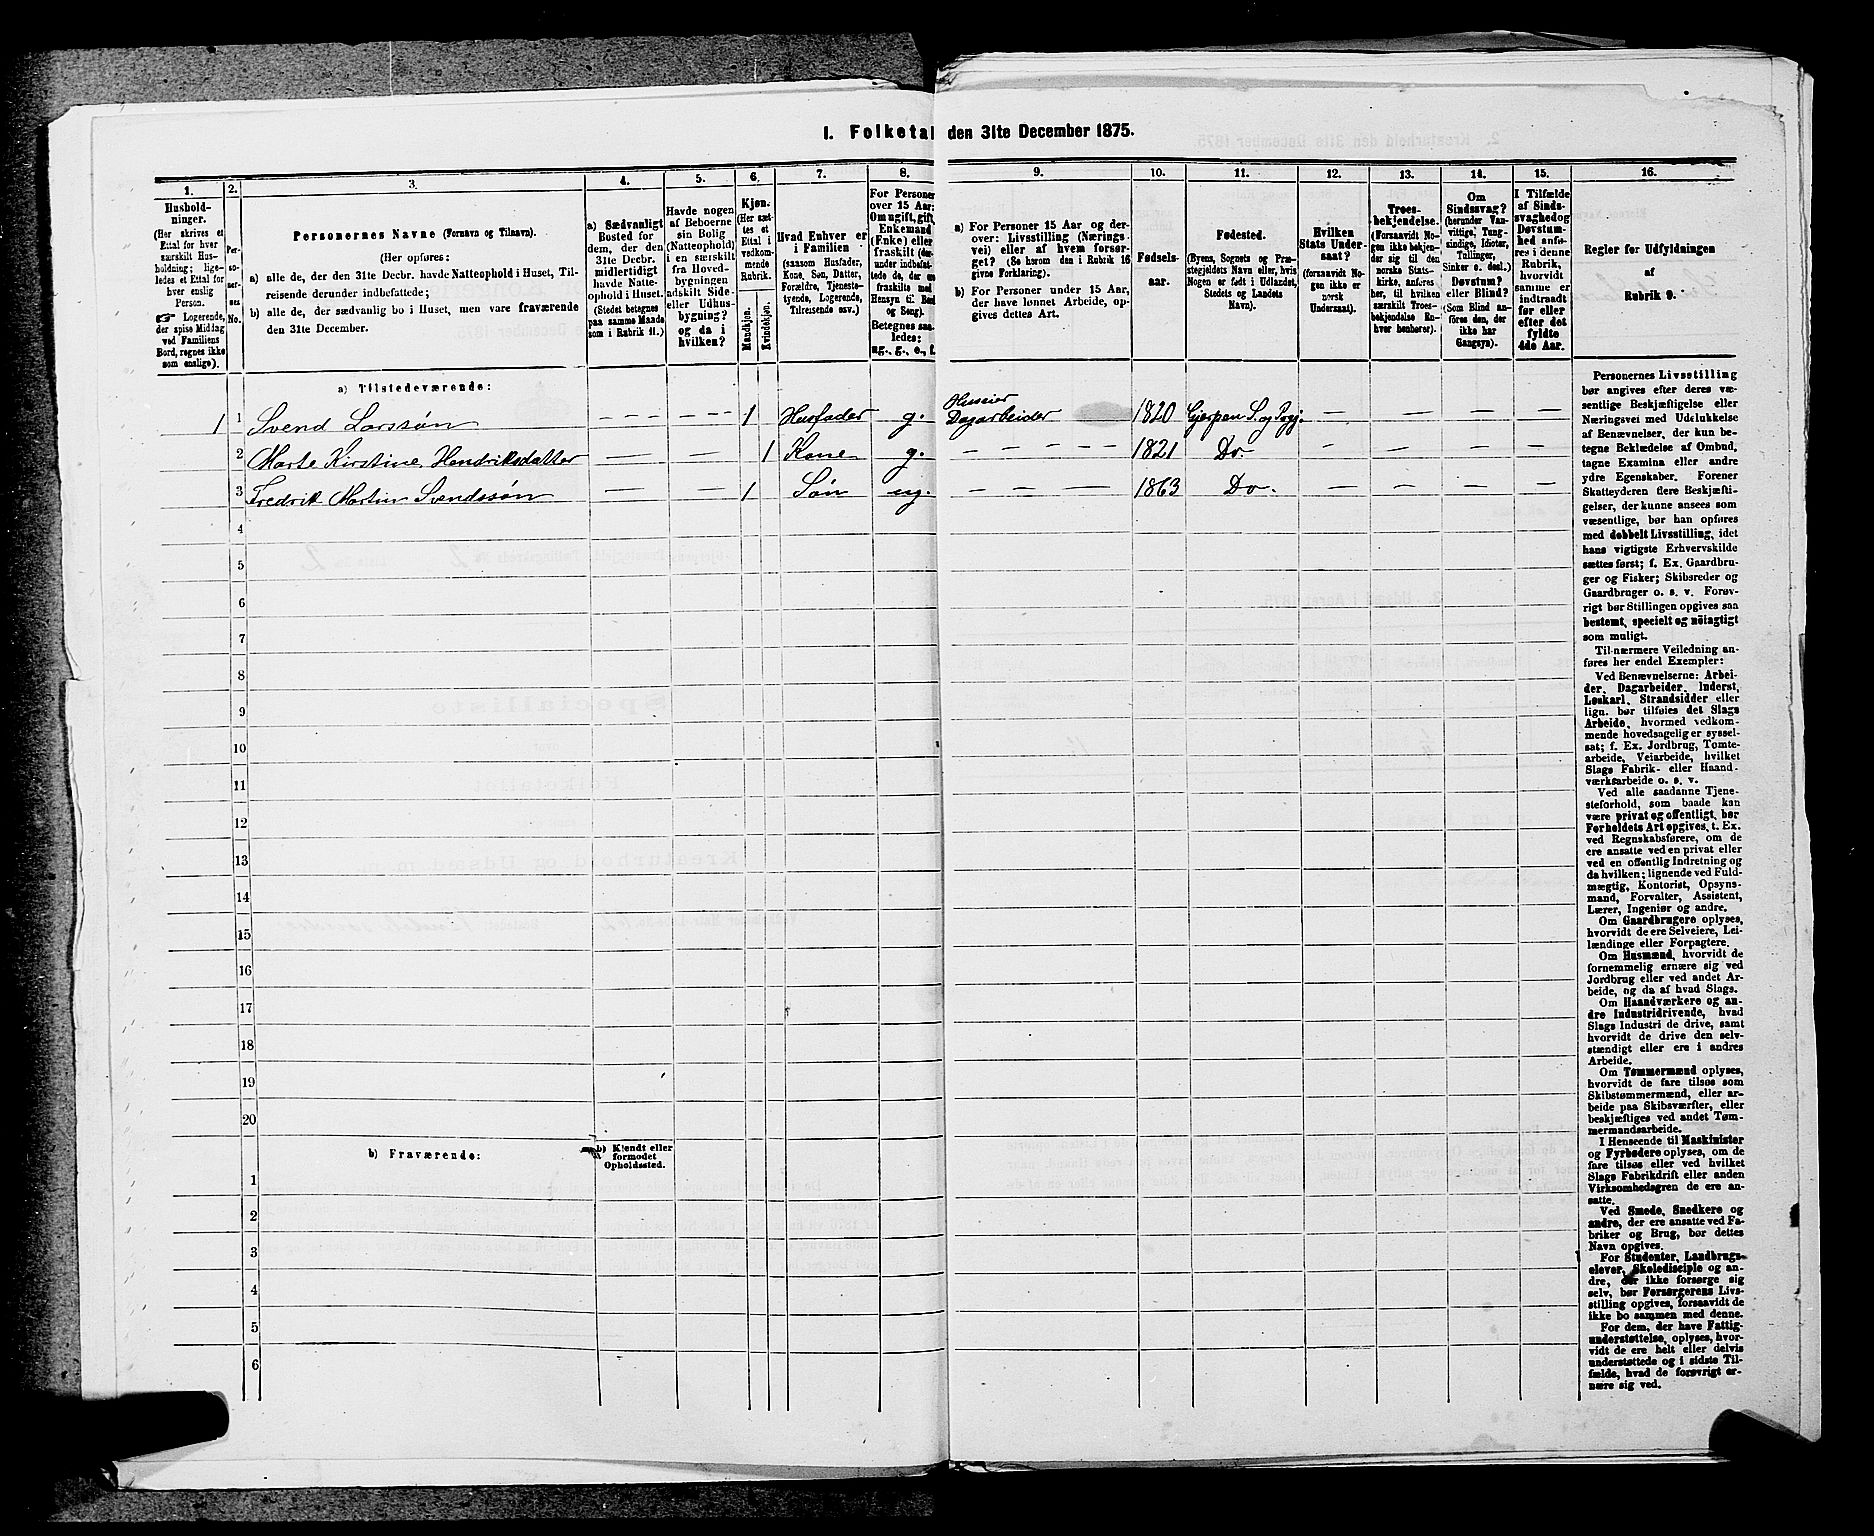 I. Folketal den 31te December 1875.
1. 2. 3. 4. 5. 6. 7. 8. 9. 10. 11. 12. 13. 14. 15. 16.
Hushold-
ninger.
(Her skrives et
Ettal for hver
særskilt Hus-
holdning; lige-
ledes et Ettal for
hver enslig
Person.
☞ Logerende,
der spise Middag
ved Familiens
Bord, regnes ikke
som enslige).
Per-
so-
ner-
nes
No.
Personernes Navne (Fornavn og Tilnavn).
(Her opføres:
a) alle de, der den 31te Decbr. havde Natteophold i Huset, Til-
reisende derunder indbefattede;
b) alle de, der sædvanlig bo i Huset, men vare fraværende
den 31te December.
a) Sædvanligt
Bosted for
dem, der den
31te Decbr.
midlertidigt
havde Natte-
ophold i Huset.
(Stedet betegnes
paa samme Maade
som i Rubrik 11.)
Havde nogen
af Beboerne
sin Bolig
(Natteophold)
i en særskilt
fra Hoved-
bygningen
adskilt Side-
eller Udhus-
bygning?
og da i
hvilken?
Kjøn.
(Her sæt-
tes et
Ettal i
vedkom-
mende
Rubrik.
Mandkjøn.
Kvindekjøn.
Hvad Enhver er
i Familien
(saasom Husfader,
Kone, Søn, Datter,
Forældre, Tjeneste-
tyende, Logerende,
Tilreisende osv.)
For Personer
over 15 Aar:
Om ugift, gift,
Enkemand
(Enke) eller
fraskilt (der-
under indbefat-
tede de, der ere
fraskilte med
Hensyn til Bord
og Seng).
Betegnes saa-
ledes:
ug., g., e., f.
a) For Personer 15 Aar og der-
over: Livsstilling (Nærings-
vei) eller af hvem forsør-
get? (Se herom den i Rubrik 16
givne Forklaring).
b) For Personer under 15 Aar,
der have lønnet Arbeide, op-
gives dettes Art.
Fødsels-
aar.
Fødested.
(Byens, Sognets og Præ-
stegjeldets Navn eller, hvis
Nogen er født i Udlandet,
Stedets og Landets
Navn).
Hvilken
Stats Under-
saat?
(forsaavidt No-
gen ikke er
norsk
Undersaat).
Troes-
bekjendelse.
(Forsaavidt No-
gen ikke bekjen-
der sig til den
norske Stats-
kirke, anføres
her, til hvilken
særskilt Troes-
bekjendelse En-
hver henhører).
Om
Sindssvag?
(herunder Van-
vittige, Tung-
sindige, Idioter,
Tullinger,
Sinker o. desl.)
Døvstum?
eller Blind?
(Som Blind an-
føres den, der
ikke har
Gangsyn).
I Tilfælde
af Sinds-
svaghed og
Døvstum-
hed anfø-
res i denne
Rubrik,
hvorvidt
samme er
indtraadt
før eller
efter det
fyldte
4de Aar.
Regler for Udfyldningen
af
Rubrik 9.
a) Tilstedeværende:
1 1 Svend Larssøn – – – – – 1 Husfader g. Huseier
Dagarbeider 1820 Gjerpen S. og Prgj. – – – –
2 Marte Kirstine Hendriksdatter – – – 1 Kone g. – – – 1821 Do – – – –
3 Fredrik Martin Svendssøn – – – 1 Søn ug. – – – 1863 Do. – – – –
4
5
6
7
8
9
10
11
12
13
14
15
16
17
18
19
20
b) Fraværende:
b) Kjendt eller
formodet
Opholdssted.
1
2
3
4
5
6
Personernes Livsstilling
bør angives efter deres væ-
sentlige Beskjæftigelse eller
Næringsvei med Udelukkelse
af Benævnelser, der kun be-
tegne Beklædelse af Ombud,
tagne Examina eller andre
ydre Egenskaber. Forener
Skatteyderen flere Beskjæfti-
gelser, der kunne ansees som
væsentlige, bør han opføres
med dobbelt Livsstilling, idet
hans vigtigste Erhvervskilde
sættes først; f. Ex. Gaardbru-
ger og Fisker; Skibsreder og
Gaardbruger o. s. v. Forøv-
rigt bør Stillingen opgives saa
bestemt, specielt og nöiagtigt
som muligt.
Til nærmere Veiledning an-
føres her endel Exempler:
Ved Benævnelserne: Arbei-
der, Dagarbeider, Inderst,
Løskarl, Strandsidder eller
lign. bør tilføies det Slags
Arbeide, hvormed vedkom-
mende hovedsagelig er syssel-
sat; f. Ex. Jordbrug, Tomte-
arbeide, Veiarbeide, hvilket
Slags Fabrik- eller Haand-
værksarbeide o. s. v.
Ved alle saadanne Tjene-
steforhold, som baade kan
være privat og offentligt, bør
Forholdets Art opgives, t. Ex.
ved Regnskabsførere, om de
ere ansatte ved en privat eller
ved en offentlig Indretning og
da hvilken; lignende ved Fuld-
mægtig, Kontorist, Opsyns-
mand, Forvalter, Assistent,
Lærer, Ingeniør og andre.
Om Gaardbrugere oplyses,
hvorvidt de ere Selveiere, Lei-
lændinge eller Forpagtere.
Om Husmænd, hvorvidt de
fornemmelig ernære sig ved
Jordbrug eller ved andet Ar-
beide, og da af hvad Slags.
Om Haandværkere og an-
dre Industridrivende, hvad
Slags Industri de drive, samt
hvorvidt de drive den selv-
stændigt eller ere i andres
Arbeide.
Om Tømmermænd oplyses,
hvorvidt de fare tilsøs som
Skibstømmermænd, eller ar-
beide paa Skibsværfter, eller
beskjæftiges ved andet Tøm-
mermandsarbeide.
I Henseende til Maskinister
og Fyrbødere oplyses, om de
fare tilsøs eller ved hvilket
Slags Fabrikdrift eller anden
Virksomhedsgren de ere an-
satte.
Ved Smede, Snedkere og
andre, der ere ansatte ved Fa-
briker og Brug, bør dettes
Navn opgives.
For Studenter, Landbrugs-
elever, Skoledisciple og an-
dre, der ikke forsørge sig
selv, bør Forsørgerens Livs-
stilling opgives, forsaavidt de
ikke bo sammen med denne.
For dem, der have Fattig-
understøttelse, oplyses, hvor-
vidt de ere helt eller delvis
understøttede og i sidste Til-
fælde, hvad de forøvrigt er-
nære sig ved.